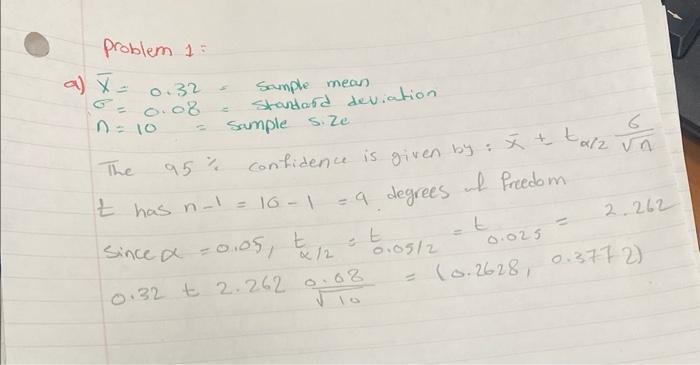 Problem 1:
a) X̄ = 0.32 = Sample mean
σ = 0.08 = Standard deviation
n = 10 = Sample size
The 95% confidence is given by: x̄ ± t_{α/2} σ/√n
t has n-1 = 10-1 = 9 degrees of freedom
Since α = 0.05, t_{α/2} = t_{0.05/2} = t_{0.025} = 2.262
0.32 ± 2.262 0.08/√10 = (0.2628, 0.3772)